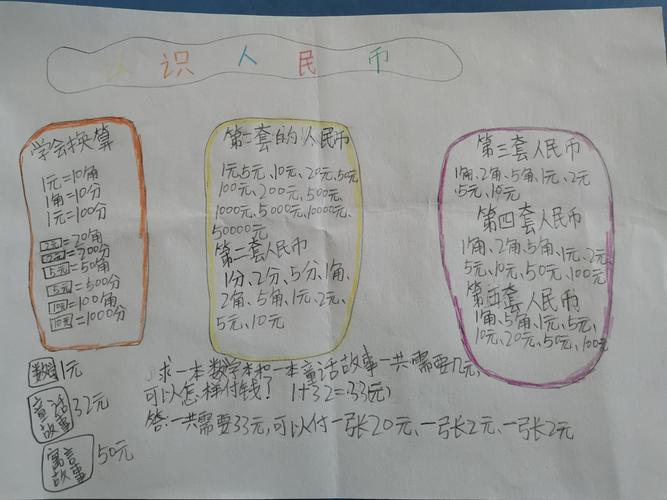 认识人民币
学会换算
1元=10角
1角=10分
1元=100分
2元=20角
2元=200分
5元=50角
5元=500分
10元=100角
10元=1000分
第一套的人民币
1元、5元、10元、20元、50元
100元、200元、500元、
1000元、5000元、10000元、
50000元
第二套人民币
1分、2分、5分、1角、
2角、5角、1元、2元、
5元、10元
第三套人民币
1角、2角、5角、1元、2元
、5元、10元
第四套人民币
1角、2角、5角、1元、2元、
5元、10元、50元、100元
第五套人民币
1角、5角、1元、5元、
10元、20元、50元、100元
数学 1元
童话故事 32元
寓言故事 50元
求一本数学本和一本童话故事一共需要几元,
可以怎样付钱? 1+32=33(元)
答:一共需要33元,可以付一张20元、一张2元、一张2元